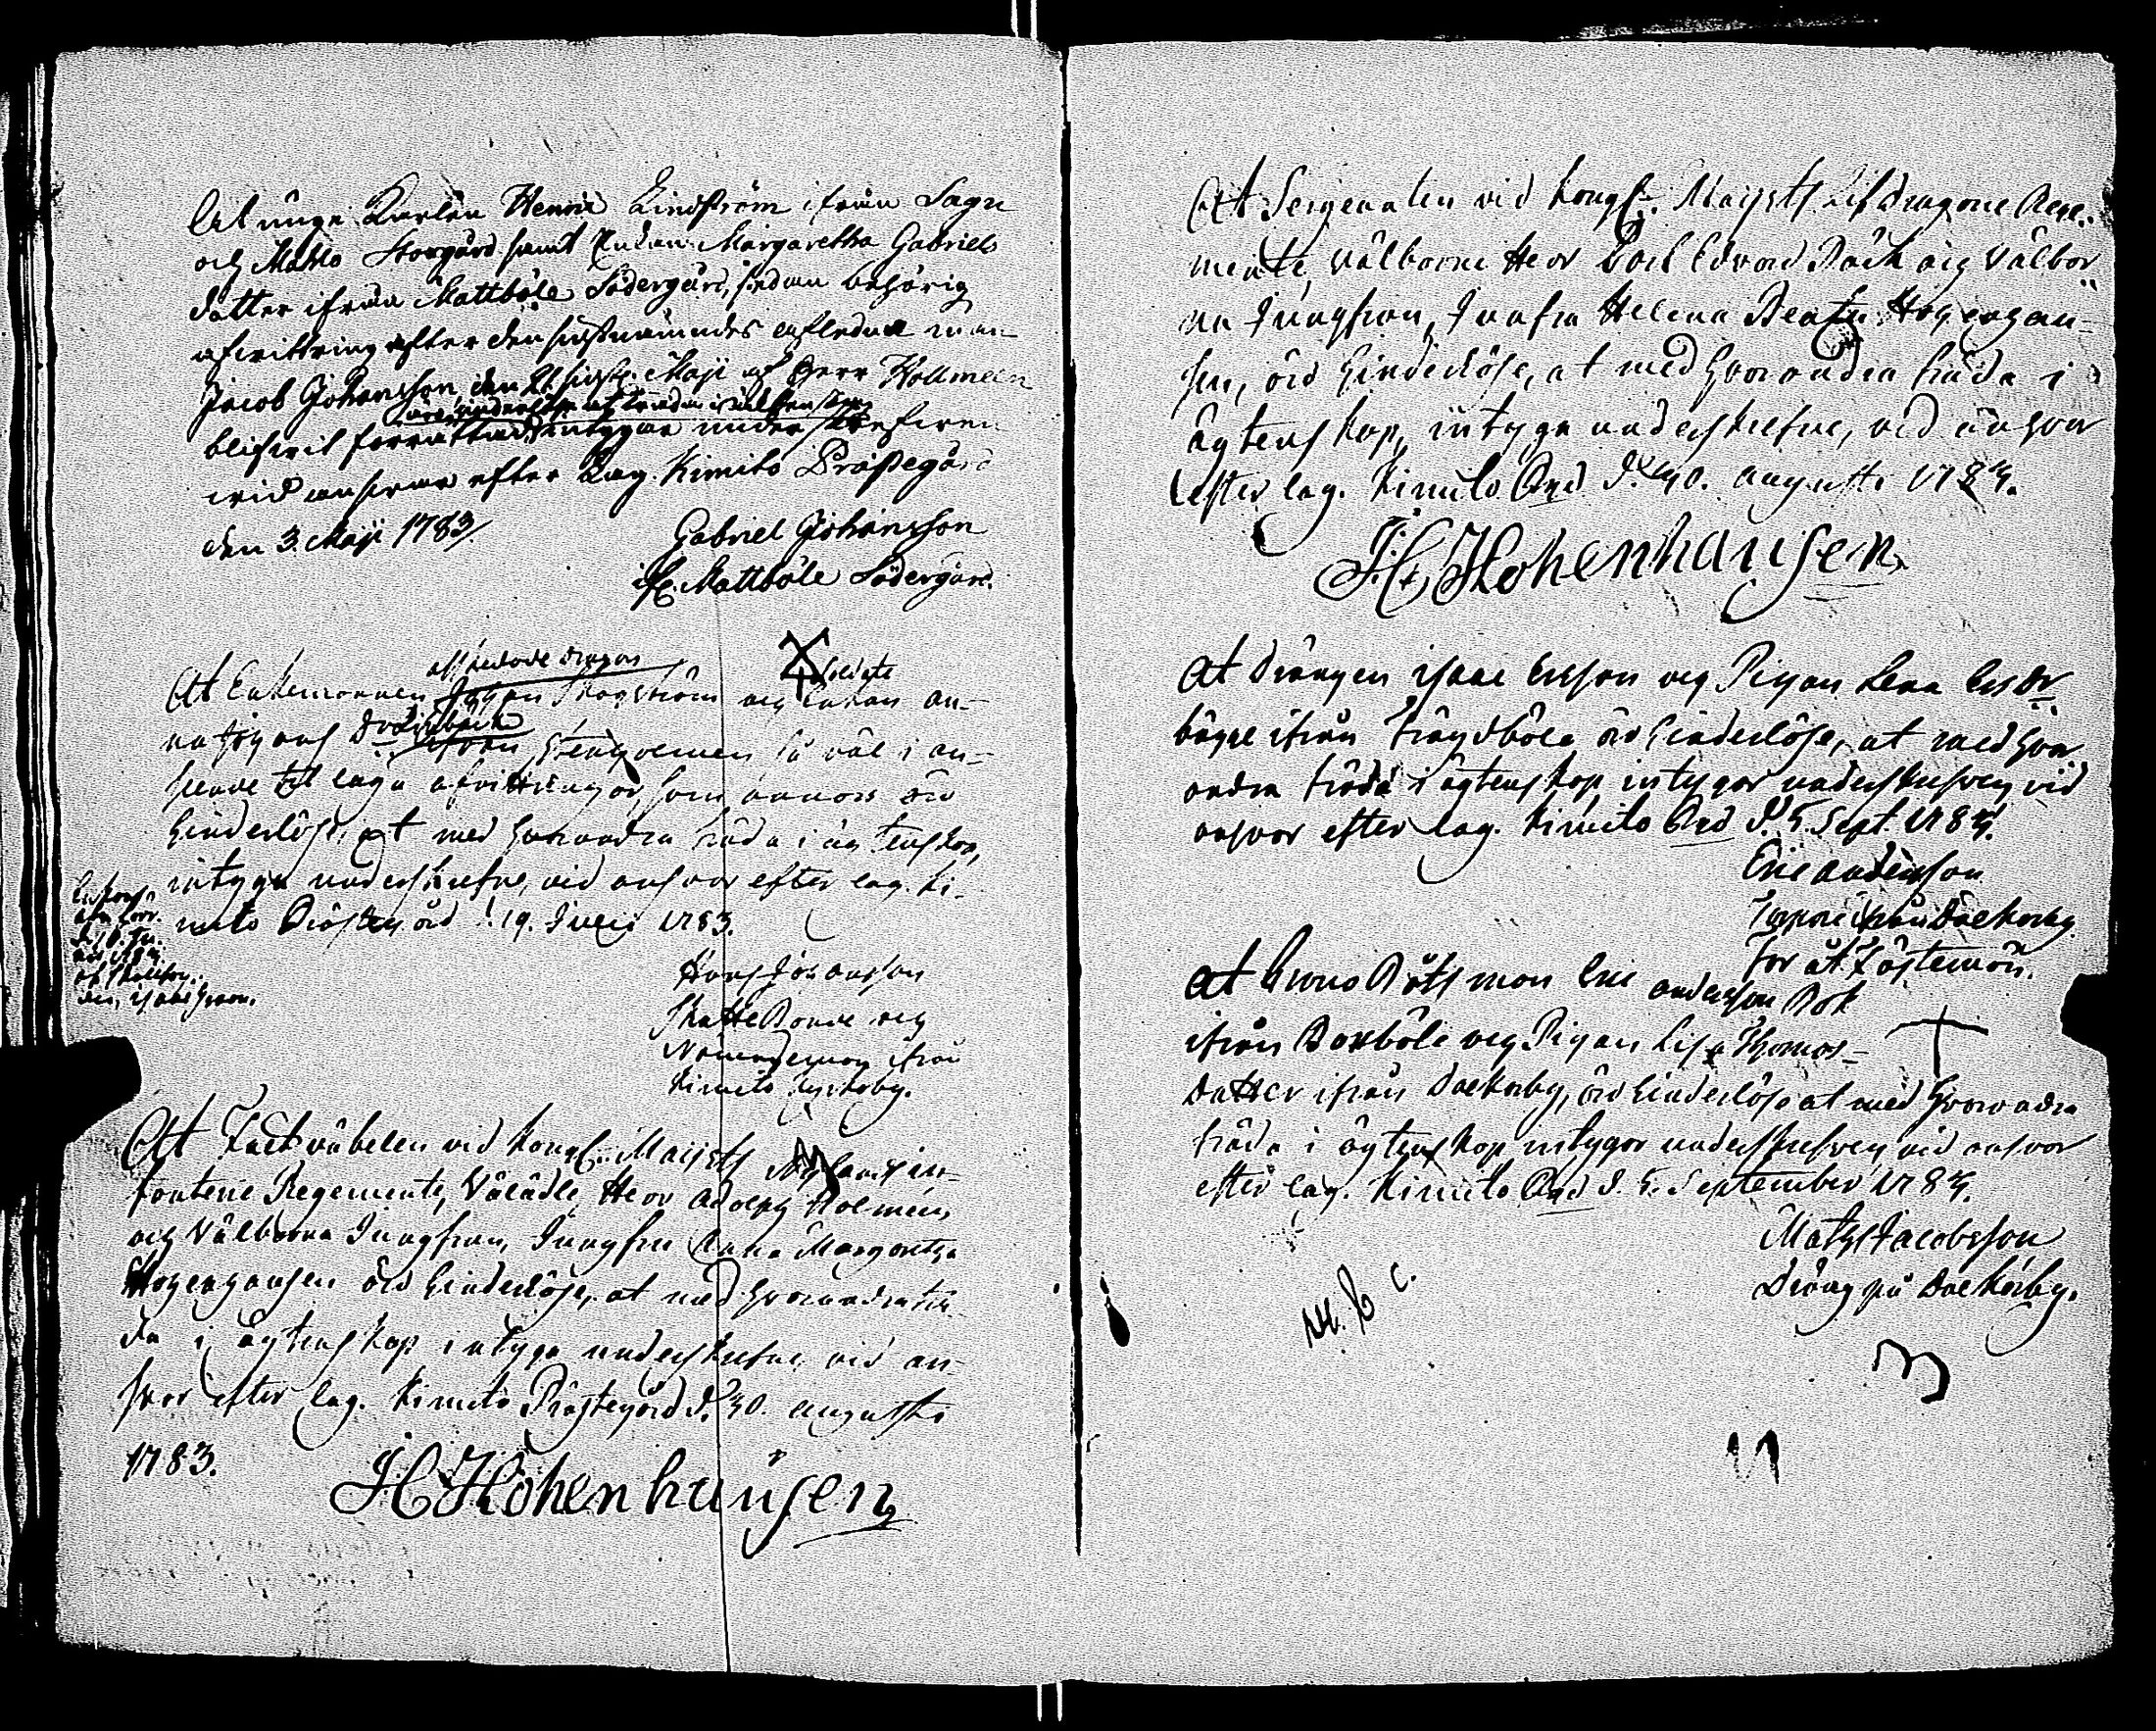 At unge Karlen Henric Lindström ifrån Sagu
och Mattlo Storgård samt Enkan Margaretha Gabriels
dotter ifrån Mattböle Södergård, sedan behörig
afvittring efter den sistnämndes aflednа man
Jacob Johansson den 21. sistl. Maji af Herr Hollmén
äro hinderlöse at träda i ächtenskap
blifvit förrättad, intygar underskrefven
vid ansvar efter Lag. Kimito Prästegård
den 3. Maji 1783.
Gabriel Johansson
ifr. Mattböle Södergård.
afskedade dragon
At Enkemannen Johan Skogström och Enkan an-
soldate
na
ifrån så väl i an-
seende til laga afvittringar, som annors äro
hinderlöse, at med hvarandra träda i ägtenskap,
intyga underskrefne, vid ansvar efter lag. Ki-
mito Prästegård d. 19. Julii 1783.
Hans Johansson
Skatte Bonde och
Nämndeman ifrån
Kimito Kyrkoby.
At Fältväbelen vid Kongl. Maijsts Nylands in-
fanterie Regemente, Välädle Herr Adolph Holmén,
och Välborna Jungfrun, Jungfru Anna Margaretha
Hohenhausen äro hinderlöse, at med hvarandra trä-
da i ägtenskap intyga underskrefne, vid an-
svar efter lag. Kimito Prästegård d. 30. augusti
1783.
J H Hohenhausen
At Sergeanten vid Kongl. Maijsts Lif Dragone Rege-
mente, välborne Herr Carl Edvard Bäck och Välbor-
na Jungfrun, Jungfru Helena Beata Hohenhau-
sen, äro hinderlöse, at med hvarandra träda i
ägtenskap, intyga underskrefne, vid ansvar
efter lag. Kimito Prgd d. 30. augusti 1783.
J H Hohenhausen
At drängen isaac Ersson och Pigan Lena Ersdr
bägge ifrån Trängsböle äro hinderlöse, at med hvar
andra träda i ägtenskap intygar underskrefven vid
ansvar efter lag. Kimito Prgd d. 5. Sept. 1783.
Eric andersson
ifrån Dalkarby.
At Arvio Båtsman Eric andersson Rok
ifrån Boxböle och Pigan Lisa Thomas-
datter ifrån Dalkarby, äro hinderlöse at med hvarandra
träda i ägtenskap intygar underskrefven vid ansvar
efter lag. Kimito Prgd d. 5. September 1783.
Mats Jacobsson
Dräng på Dalkarby.